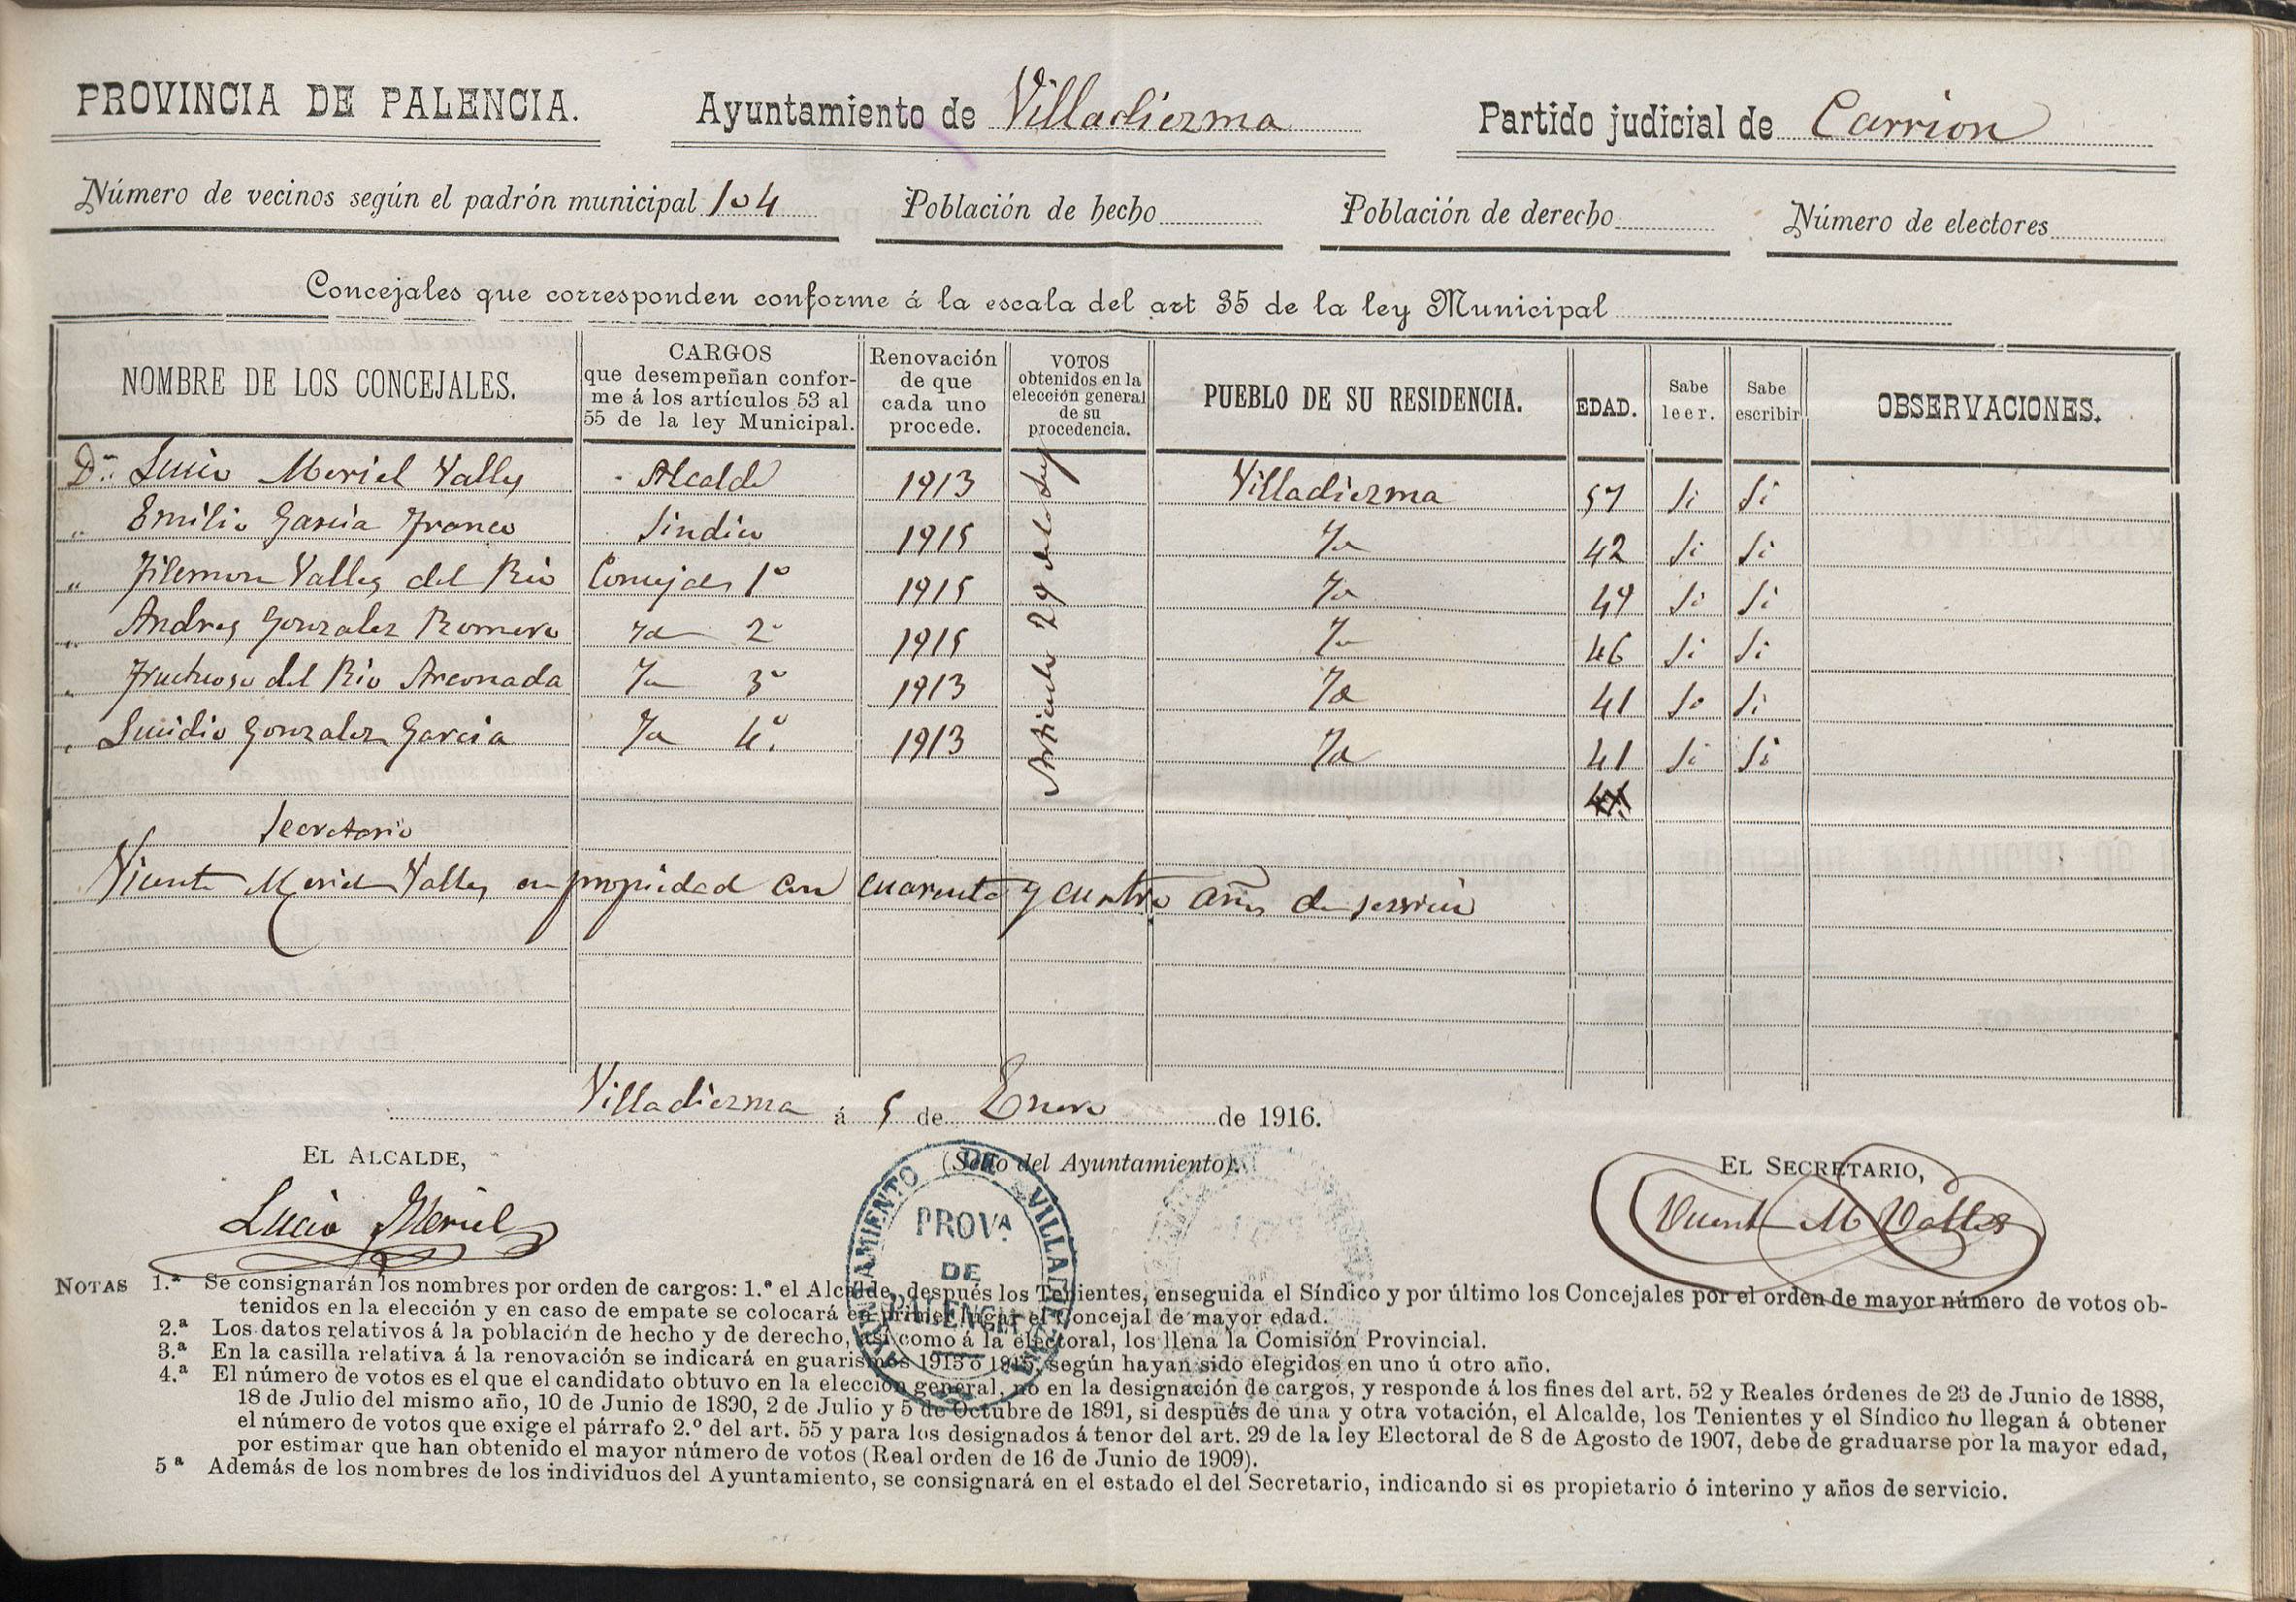 PROVINCIA DE PALENCIA. Ayuntamiento de Villadiezma Partido judicial de Carrion
Número de vecinos según el padrón municipal 104 Población de hecho Población de derecho Número de electores
Concejales que corresponden conforme á la escala del art 35 de la ley Municipal
NOMBRE DE LOS CONCEJALES. CARGOS que desempeñan confor- me á los artículos 53 al 55 de la ley Municipal. Renovación de que cada uno procede. VOTOS obtenidos en la elección general de su procedencia. PUEBLO DE SU RESIDENCIA. EDAD. Sabe leer. Sabe escribir OBSERVACIONES.
Dn. Lucio Meriel Valles Alcalde 1913 Villadiezma 57 Si Si
" Emilio Garcia Franco Sindico 1915 Ya 42 Si Si
" Filemon Valles del Rio Concejales 1º 1915 Ya 49 Si Si
" Andres Gonzalez Romero Ya 2º 1915 Ya 46 Si Si
" Fructuoso del Rio Arconada Ya 3º 1913 Ya 41 Si Si
" Lucidio Gonzalez Garcia Ya 4º 1913 Ya 41 Si Si
Articulo 29 de la ley
Secretario
Vicente Meriel Valles en propiedad con cuarenta y cuatro años de servicio
Villadiezma á 5 de Enero de 1916.
EL ALCALDE, (Sello del Ayuntamiento). EL SECRETARIO,
Lucio Meriel Vicente M Valles
AYUNTAMIENTO DE VILLADIEZMA
PROVA
DE
PALENCIA
NOTAS 1.ª Se consignarán los nombres por orden de cargos: 1.º el Alcalde, después los Tenientes, enseguida el Síndico y por último los Concejales por el orden de mayor número de votos ob-
tenidos en la elección y en caso de empate se colocará en primer lugar el Concejal de mayor edad.
2.ª Los datos relativos á la población de hecho y de derecho, así como á la electoral, los llena la Comisión Provincial.
3.ª En la casilla relativa á la renovación se indicará en guarismos 1913 ó 1915, según hayan sido elegidos en uno ú otro año.
4.ª El número de votos es el que el candidato obtuvo en la elección general, no en la designación de cargos, y responde á los fines del art. 52 y Reales órdenes de 23 de Junio de 1888,
18 de Julio del mismo año, 10 de Junio de 1890, 2 de Julio y 5 de Octubre de 1891, si después de una y otra votación, el Alcalde, los Tenientes y el Síndico no llegan á obtener
el número de votos que exige el párrafo 2.º del art. 55 y para los designados á tenor del art. 29 de la ley Electoral de 8 de Agosto de 1907, debe de graduarse por la mayor edad,
por estimar que han obtenido el mayor número de votos (Real orden de 16 de Junio de 1909).
5ª Además de los nombres de los individuos del Ayuntamiento, se consignará en el estado el del Secretario, indicando si es propietario ó interino y años de servicio.